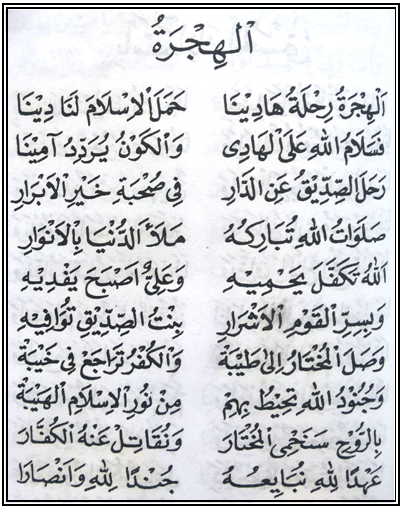 اَلْهِجْرَةُ
اَلْهِجْرَةُ رِحْلَةُ هَادِيْنَا حَمَلَ الْاِسْلَامَ لَنَا دِيْنَا
فَسَلَامُ اللهِ عَلَى الْهَادِى وَالْكَوْنُ يُرَدِّدُ آمِيْنَا
رَحَلَ الصِّدِّيْقُ عَنِ الدَّارِ فِى صُحْبَةِ خَيْرِ الْاَبْرَارِ
صَلَوَاتُ اللهِ تُبَارِكُهُ مَلَأَ الدُّنْيَا بِالْاَنْوَارِ
اَللهُ تَكَفَّلَ يَحْمِيْهِ وَعَلِيٌّ اَصْبَحَ يَفْدِيْهِ
وَبِسِرِّ الْقَوْمِ الْاَشْرَارِ بِنْتُ الصِّدِّيْقِ تُوَافِيْهِ
وَصَلَ الْمُخْتَارُ اِلَى طَيْبَةَ وَالْكُفْرُ تَرَاجَعَ فِى خَيْبَةْ
وَجُنُوْدُ اللهِ تُحِيْطُ بِهِمْ مِنْ نُوْرِ الْاِسْلَامِ الْهَيْبَةْ
بِالرُّوْحِ سَنَحْمِى الْمُخْتَارَ وَنُقَاتِلْ عَنْهُ الْكُفَّارَ
عَهْدًا لِلّٰهِ نُبَايِعُهُ جُنْدًا لِلّٰهِ وَاَنْصَارًا